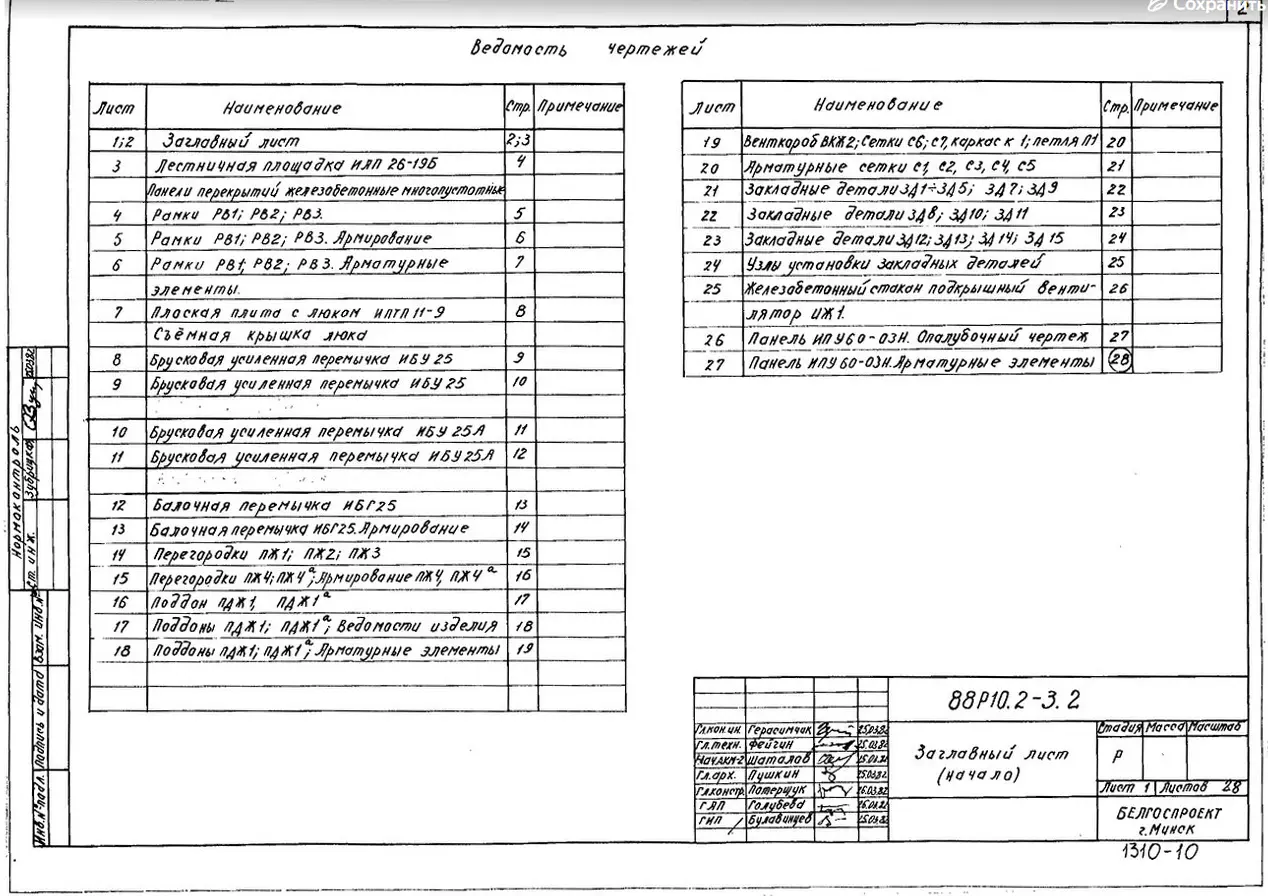 Сохранить
2
Ведомость чертежей
Лист Наименование Стр. Примечание
1;2 Заглавный лист 2;3
3 Лестничная площадка ИЛП 26-19Б 4
Панели перекрытий железобетонные многопустотные
4 Рамки РВ1; РВ2; РВ3. 5
5 Рамки РВ1; РВ2; РВ3. Армирование 6
6 Рамки РВ1; РВ2; РВ3. Арматурные 7
элементы.
7 Плоская плита с люком ИПТП 11-9 8
Съёмная крышка люка
8 Брусковая усиленная перемычка ИБУ 25 9
9 Брусковая усиленная перемычка ИБУ 25 10
10 Брусковая усиленная перемычка ИБУ 25А 11
11 Брусковая усиленная перемычка ИБУ 25А 12
12 Балочная перемычка ИБГ25 13
13 Балочная перемычка ИБГ25. Армирование 14
14 Перегородки ПЖ1; ПЖ2; ПЖ3 15
15 Перегородки ПЖ4; ПЖ4ª; Армирование ПЖ4, ПЖ4ª 16
16 Поддон ПДЖ1, ПДЖ1ª 17
17 Поддоны ПДЖ1; ПДЖ1ª; Ведомости изделия 18
18 Поддоны ПДЖ1; ПДЖ1ª; Арматурные элементы 19
Лист Наименование Стр. Примечание
19 Венткороб ВКЖ2; Сетки С6; С7, каркас К 1; петля П1 20
20 Арматурные сетки С1, С2, С3, С4, С5 21
21 Закладные детали ЗД1÷ЗД5; ЗД7; ЗД9 22
22 Закладные детали ЗД8; ЗД10; ЗД11 23
23 Закладные детали ЗД12; ЗД13; ЗД14; ЗД15 24
24 Узлы установки закладных деталей 25
25 Железобетонный стакан под крышный венти- 26
лятор ИЖ1.
26 Панель ИПУ60-03Н. Опалубочный чертеж 27
27 Панель ИПУ60-03Н. Арматурные элементы 28
Нормаконтроль
Ст. инж. Зубрицкая
Инв.№ подл. Подпись и дата Взам. инв.№
88Р10.2-3.2
Гл.кон.ин. Герасимчик 25.03.82
Гл.техн. Фейгин 25.03.82
Нач.АКМ-2 Шаталов
Гл.арх. Пушкин 25.03.82
Гл.констр. Потерщук 26.03.82
ГАП Голубева
ГИП Булавинцев 25.03.82
Заглавный лист
(начало)
Стадия Масса Масштаб
Р
Лист 1 Листов 28
БЕЛГОСПРОЕКТ
г. Минск
1310-10